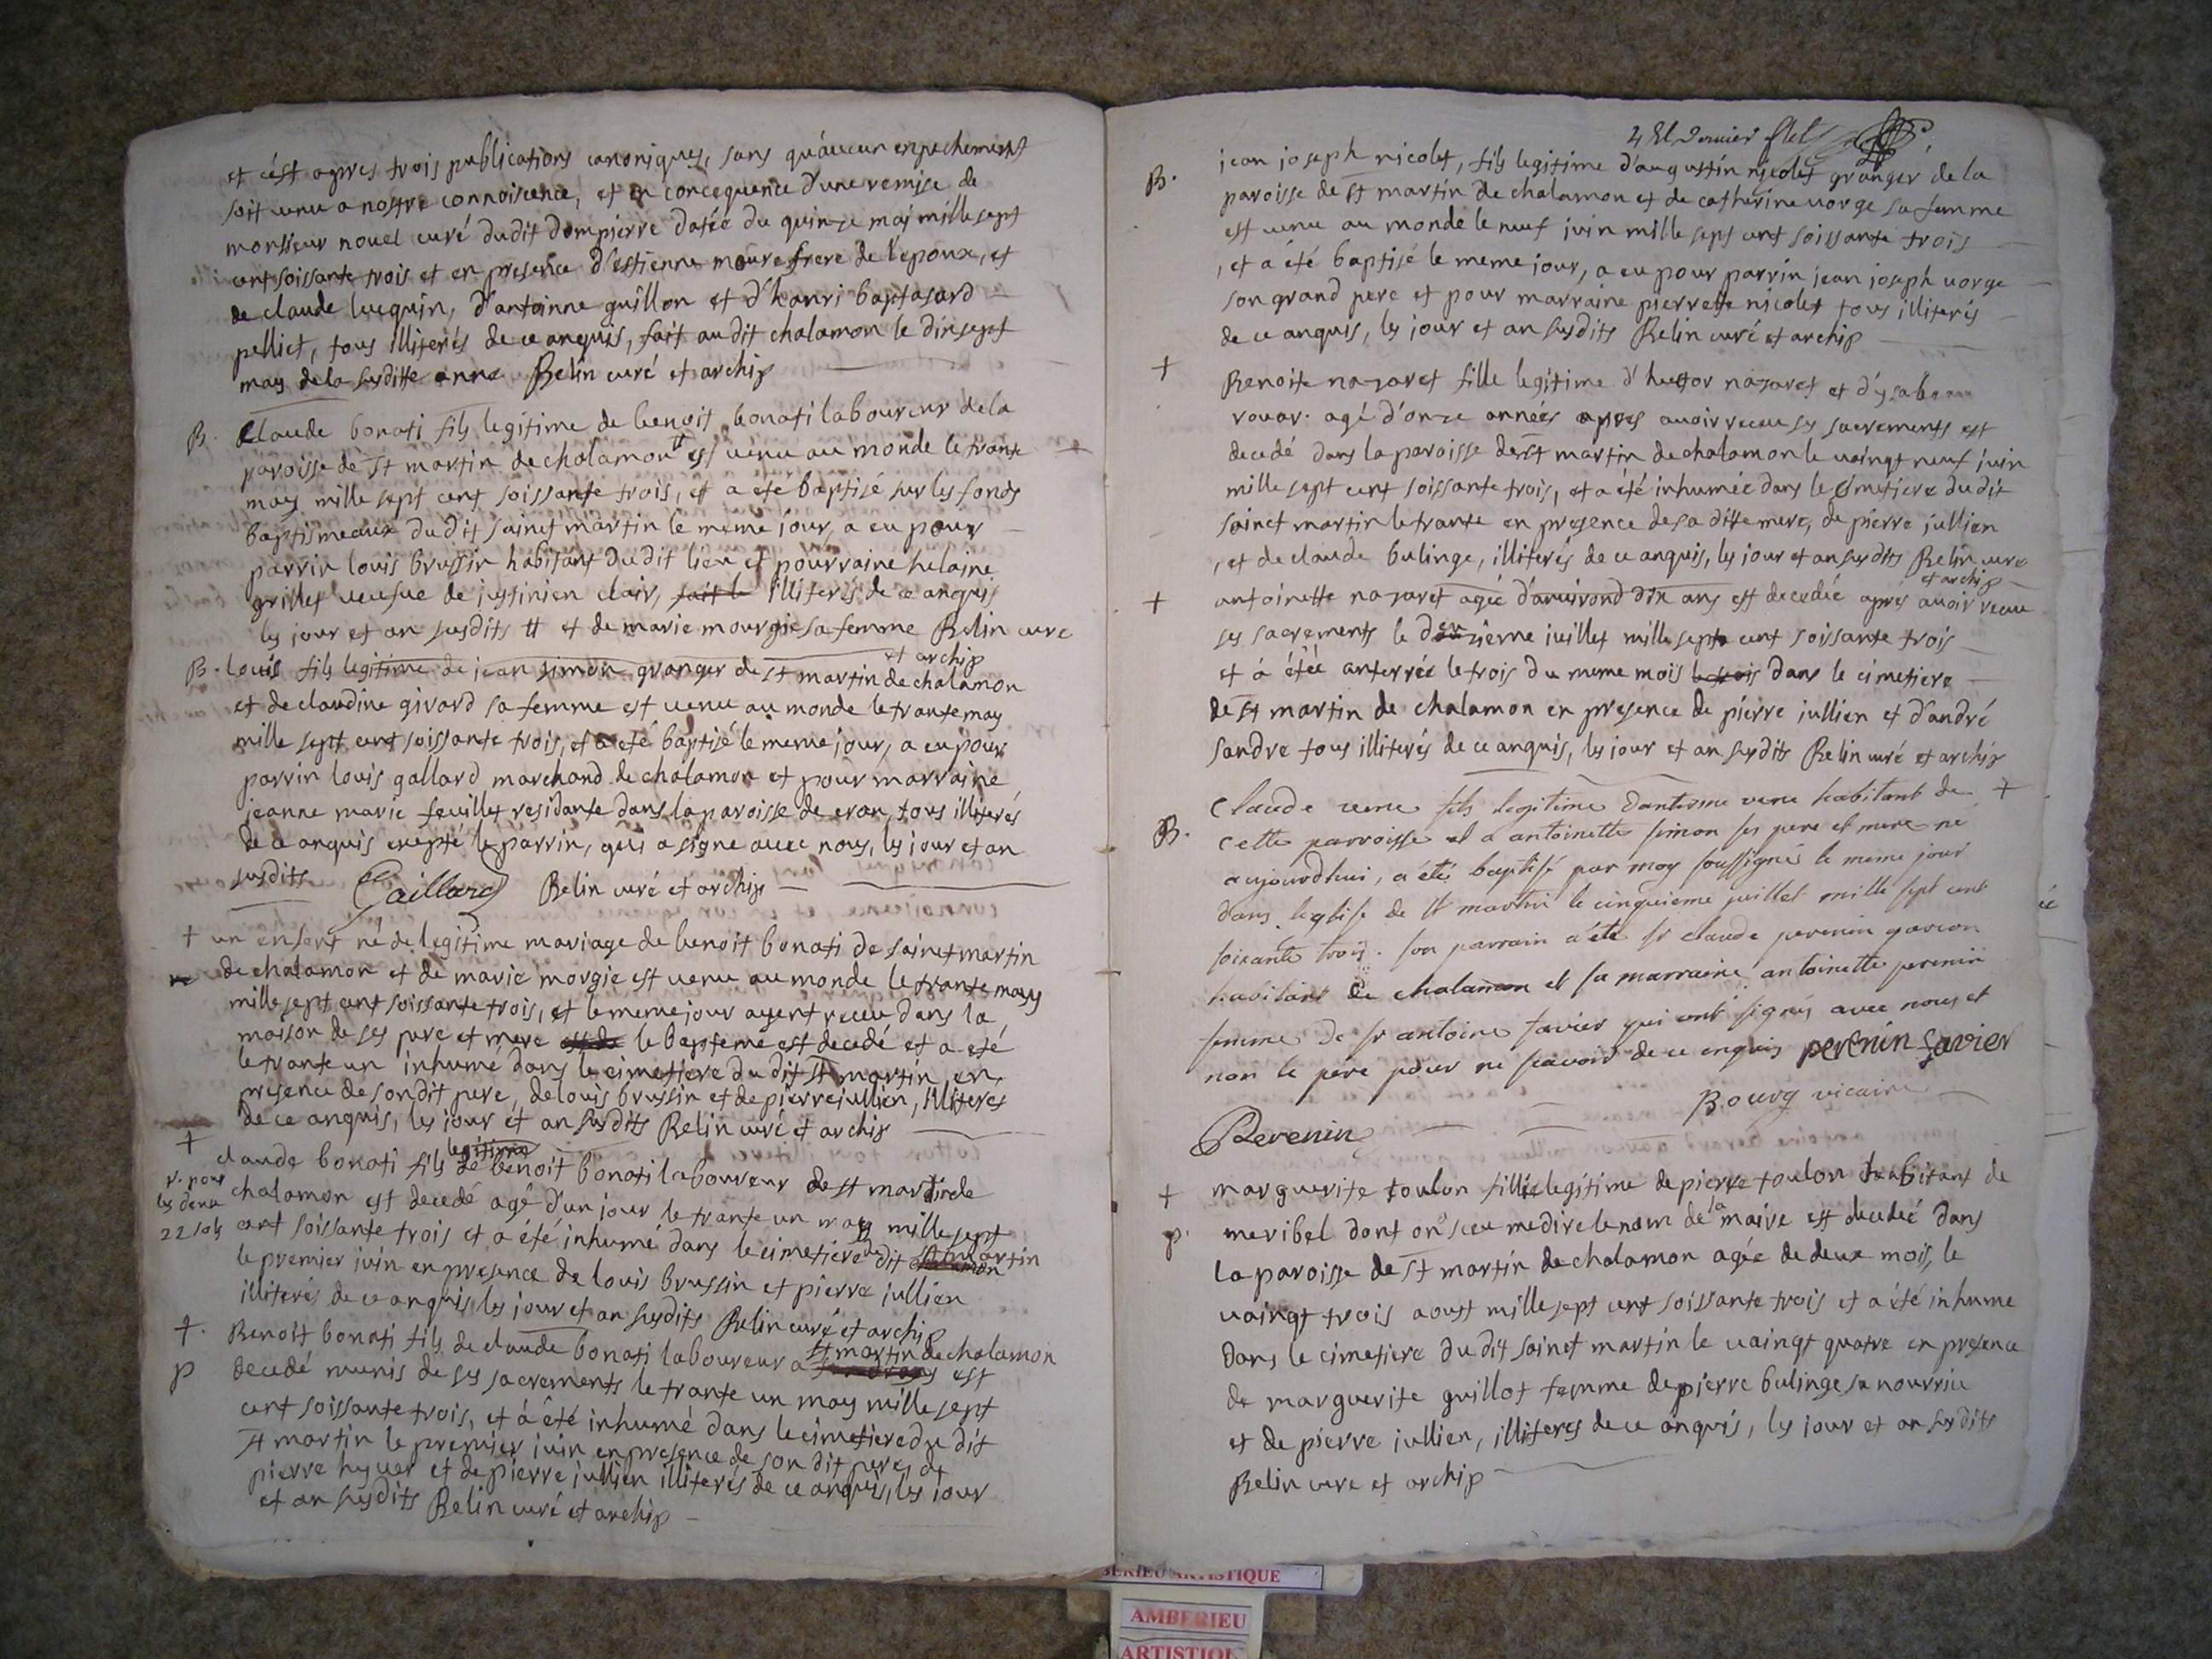 et c'est apres trois publications canoniques, sans qu'aucun enpechement
soit venu a nostre connoiscence, et en concequence d'une remise de
monsieur nouel curé dudit dompierre datée du quinze mai mille sept
cent soissante trois et en presence d'estienne moure frere de l'epoux, et
de claude lucquin, d'antoinne guillon et d'hanri baptasard
pelliet, tous illiterés de ce anquis, fait audit chalamon le dinsept
may de la susditte anné Relin curé et archip
B. Claude bonati fils legitime de benoit bonati laboureur de la
paroisse de st martin de chalamon # est venu au monde le trante
may mille sept cent soissante trois, et a eté baptisé sur les fonds
baptismeaux du dit sainct martin le meme jour, a eu pour
parrin louis brussin habitant du dit lieu et pour raine helaine
grillet veufue de justinien clair, fait le illiterés de ce anquis
les jour et an susdits # et de marie mourgie sa femme Relin curé
et archip
B. louis fils legitime de jean simon granger de st martin de chalamon
et de claudine girard sa femme est venu au monde le trante may
mille sept cent soissante trois, et a eté baptisé le meme jour, a eu pour
parrin louis gallard marchand de chalamon et pour marraine
jeanne marie feuillet residante dans la paroisse de cran, tous illiterés
de ce anquis exepté le parrin, qui a signé avec nous, les jour et an
susdits Gaillard Relin curé et archip
+ un enfant né de legitime mariage de benoit bonati de sainct martin
de chalamon et de marie morgie est venu au monde le trante may
mille sept cent soissante trois, et le meme jour ayent receu dans la
maison de ses pere et mere le bapteme est decedé et a eté
le trante un inhumé dans le cimetiere du dit st martin en
presence de son dit pere, de louis brussin et de pierre jullien, illiteres
de ce anquis, les jour et an susdits Relin curé et archip
+ legitime
claude bonati fils de benoit bonati laboureur de st martin de
r. pour les deux 22 sols
chalamon est decedé agé d'un jour le trante un may mille sept
cent soissante trois et a été inhumé dans le cimetiere du dit st martin
le premier juin en presence de louis brussin et pierre jullien
illiterés de ce anquis les jour et an susdits Relin curé et archip
+. Benoit bonati fils de claude bonati laboureur a st martin de chalamon
p decedé munis de ses sacrements le trante un may mille sept
cent soissante trois, et à été inhumé dans le cimetiere du dit
st martin le premier juin en presence de son dit pere, de
pierre huver et de pierre jullien illiterés de ce anquis, les jour
et an susdits Relin curé et archip
B. jean joseph nicolet, fils legitime d'augustin nicolet granger de la
paroisse de st martin de chalamon et de catherine vorge sa femme
est venu au monde le neuf juin mille sept cent soissante trois
, et a été baptisé le meme jour, a eu pour parrin jean joseph vorge
son grand pere et pour marraine pierrette nicolet tous illiterés
de ce anquis, les jour et an susdits Relin curé et archip
+ Benoite nazaret fille legitime d'hector nazaret et d'ysabeau
rovar. agé d'onze années apres avoir receu ses sacrements est
decedé dans la paroisse de st martin de chalamon le vaingt neuf juin
mille sept cent soissante trois, et a été inhumée dans le cimetiere du dit
sainct martin le trante en presence de sa ditte mere, de pierre jullien
, et de claude bulinge, illiterés de ce anquis, les jour et an susdits Relin curé
et archip
+ antoinette nazaret agée d'anvirond dix ans est decedée aprés avoir receu
ses sacrements le deuzieme juillet mille sept cent soissante trois
et à étée anterrée le trois du meme mois le trois dans le cimetiere
de st martin de chalamon en presence de pierre jullien et d'andré
sandre tous illiterés de ce anquis, les jour et an susdits Relin curé et archip
B. Claude verne fils legitime d'antoine verne habitant de +
cette parroisse et a antoinette simon ses pere et mere né
aujourdhui, a été baptisé par moy soussigné le meme jour
dans l'eglise de st martin le cinquieme juillet mille sept cent
soixante trois. son parrain a été sr claude perenin garcon
habitant de chalamon et sa marraine antoinette perenin
femme de sr antoine favier qui ont signés avec nous et
non le pere pour ne scavoir de ce enquis perenin favier
Bourg vicaire
Perenin
+ marguerite toulon fillie legitime de pierre toulon habitant de
p. meribel dont on sceu me dire le nom de la maire est decedée dans
la paroisse de st martin de chalamon agée de deux mois, le
vaingt trois aoust mille sept cent soissante trois et a été inhume
dans le cimetiere du dit sainct martin le vaingt quatre en presence
de marguerite guillot femme de pierre bulinge sa nourrice
et de pierre jullien, illiteres de ce anquis, les jour et an susdits
Relin curé et archip
BERIEU ARTISTIQUE
AMBERIEU
ARTISTIQU